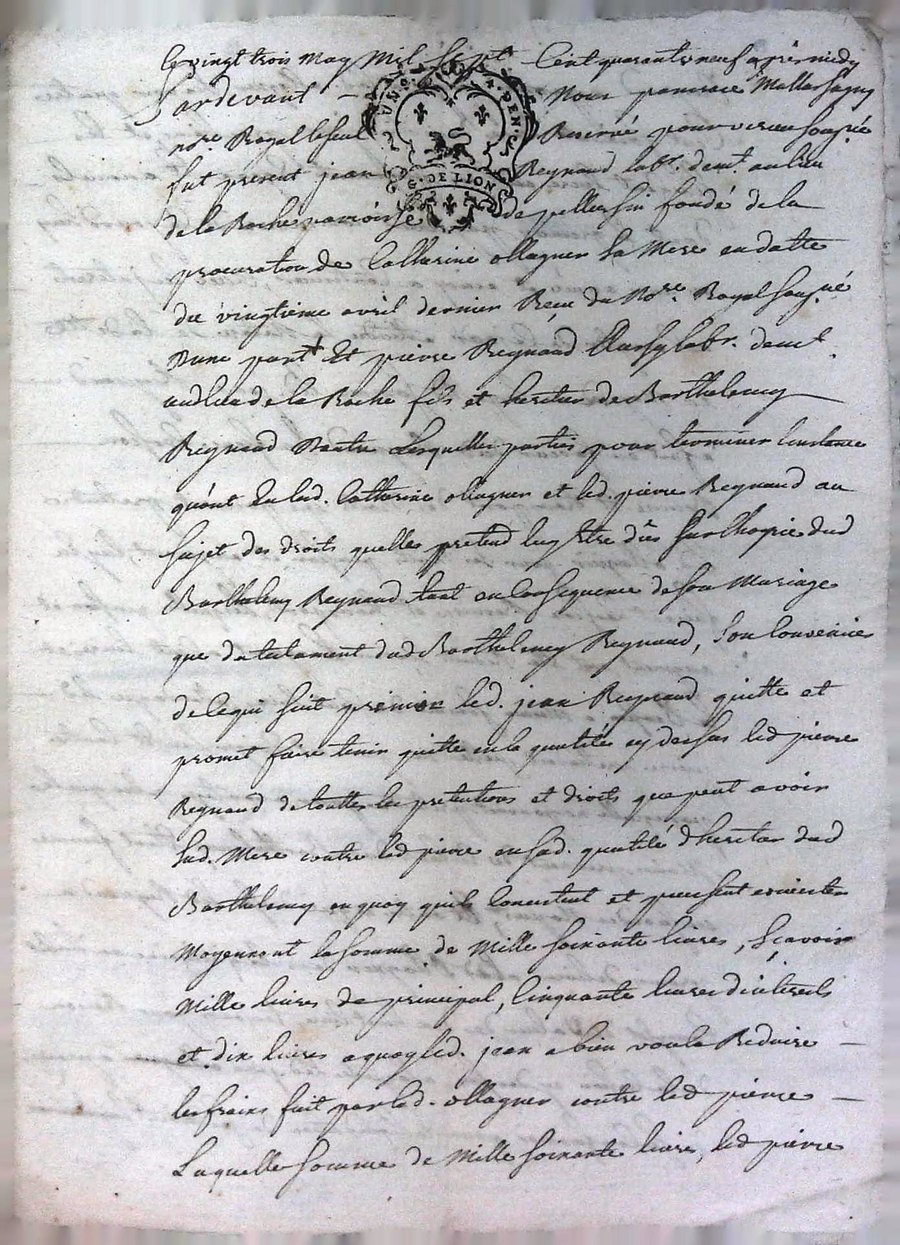 Ce vingt trois may mil sept Cent quarante neuf après midy
Pardevant Nous
nore. Royal Reservé pour vieu soussigné
UNS DEN.
G. DE LION
fut present jean Reynaud labr. demt. au lieu
de la Roche parroisse de pellussin fondé de la
procuration de Catherine ollagner sa Mere en datte
du vingtieme avril dernier Recue du Nore. Royal sousné
Dune part Et pierre Reynaud Aussy labr. demt.
audlieu de la Roche fils et heritier de Barthelemy
Reynaud Dautre Lesquelles parties pour terminer linstance
quont Eu lad. Catherine ollagner et led. pierre Reynaud au
sujet des droits quelles pretend luy Etre dus sur lhoyrie dud
Barthelemy Reynaud tant en Consequence de son Mariage
que du testament dud Barthelemy Reynaud, sont Convenües
de Ce qui suit premier led. jean Reynaud quitte et
promet faire tenir quitte en la qualité cy dessus led pierre
Reynaud de touttes les pretentions et droits que peut avoir
sad. Mere contre led pierre en sad. qualité dheritier dud
Barthelemy en quoy quils Concistent et puissent concister
Moyennant la somme de Mille soixante livres, sçavoir
Mille livres de principal, Cinquante livres dinterests
et dix livres a quoy led. jean a bien voulu Reduire
les frairs fait par lad. ollagner contre led pierre
Laquelle somme de Mille soixante livres, led pierre